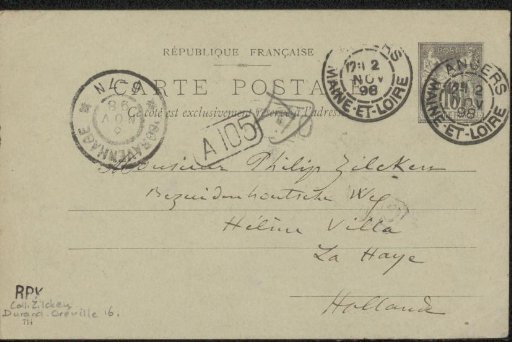 RÉPUBLIQUE FRANÇAISE
CARTE POSTA
Ce côté est exclusivement réservé à l'adresse
ANGERS
2
NOV
98
MAINE-ET-LOIRE
ANGERS
2
98
MAINE-ET-LOIRE
'SGRAVENHAGE
NOV
98
A 105
Monsieur Philip Zilcken
Bezuidenhoutsche Weg
Hélène Villa
La Haye
Hollande
RPK
Coll. Zilcken
Durand-Gréville 16.
TH